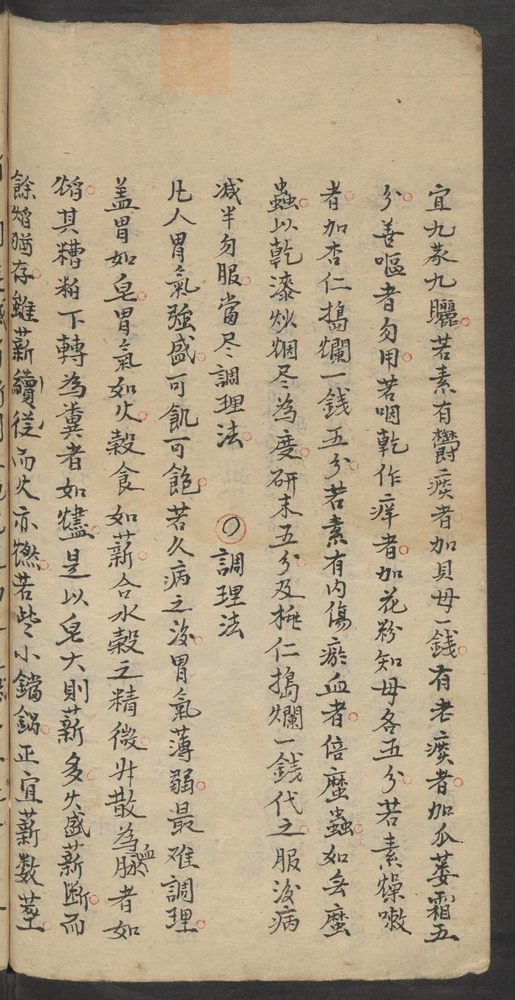 宜九蒸九曬若素有鬱痰者加貝母一錢有老痰者加瓜蔞霜五
分善嘔者勿用若咽乾作痒者加花粉知母各五分若素燥嗽
者加杏仁搗爛一錢五分若素有内傷瘀血者倍䗪蟲如無䗪
蟲以乾漆炒烟尽為度研末五分及桃仁搗爛一錢代之服後病
減半勿服當尽調理法 〇調理法
凡人胃氣強盛可飢可飽若久病之後胃氣薄弱最难調理
盖胃如皂胃氣如火穀食如薪合水穀之精微升散為血脉者如
焰其糟粕下轉為糞者如燼是以皂大則薪多火盛薪断而
餘焰猶存雖薪續從而火亦燃若些小鐺鍋正宜薪数莖